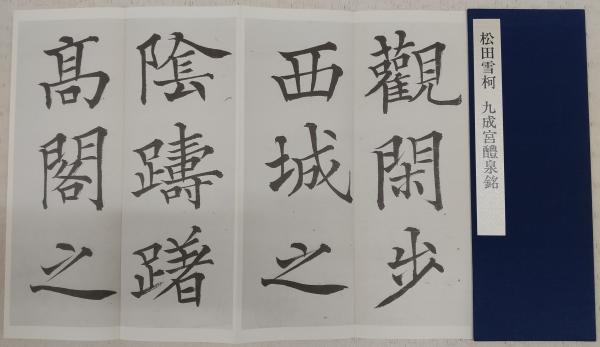 松田雪柯 九成宮醴泉銘
觀閑步
西城之
陰躊躇
高閣之